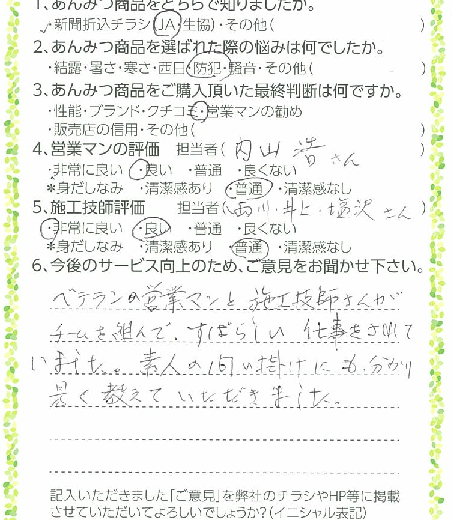 1、あんみつ商品をどちらで知りましたか。
・新聞折込チラシ・JA・生協)・その他( )
2、あんみつ商品を選ばれた際の悩みは何でしたか。
・結露・暑さ・寒さ・西日・防犯・騒音・その他( )
3、あんみつ商品をご購入頂いた最終判断は何ですか。
・性能・ブランド・クチコミ・営業マンの勧め
・販売店の信用・その他( )
4、営業マンの評価 担当者( 内山 浩さん )
・非常に良い ・良い ・普通 ・良くない
*身だしなみ ・清潔感あり ・普通 ・清潔感なし
5、施工技師評価 担当者( 雨川・井上・塩沢さん )
・非常に良い ・良い ・普通 ・良くない
*身だしなみ ・清潔感あり ・普通 ・清潔感なし
6、今後のサービス向上のため、ご意見をお聞かせ下さい。
ベテランの営業マンと施工技師さんが
チームを組んで、すばらしい仕事をされて
いました。素人の問い掛けにも、分かり
易く教えていただきました。
記入いただきました「ご意見」を弊社のチラシやHP等に掲載
させていただいてよろしいでしょうか?(イニシャル表記)